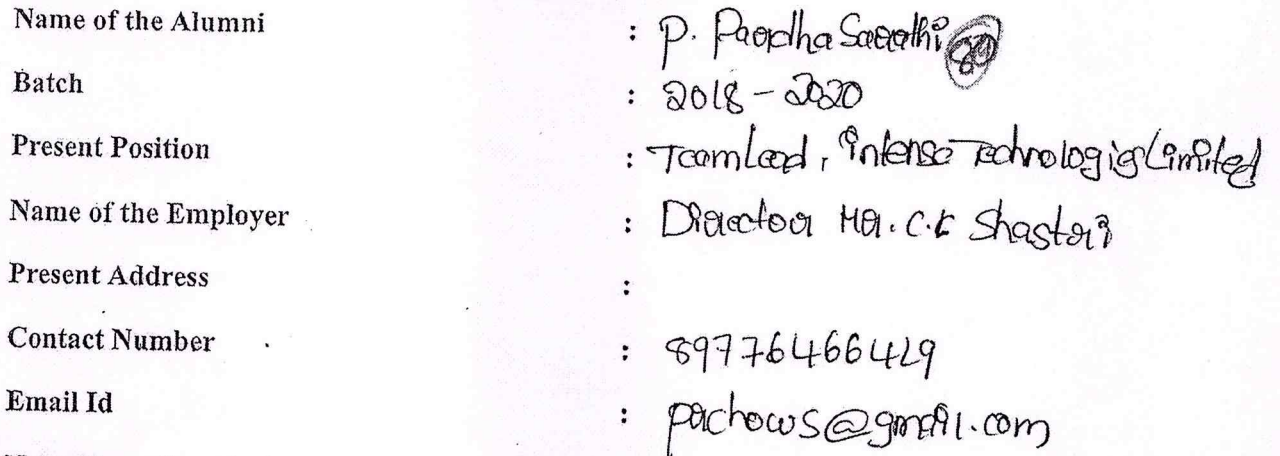 Name of the Alumni : P. Paardha Saarathi
Batch : 2018 - 2020
Present Position : Team Lead, Intense Technologies Limited
Name of the Employer : Director Mr. C.K Shastri
Present Address :
Contact Number : 89776466429
Email Id : pachows@gmail.com